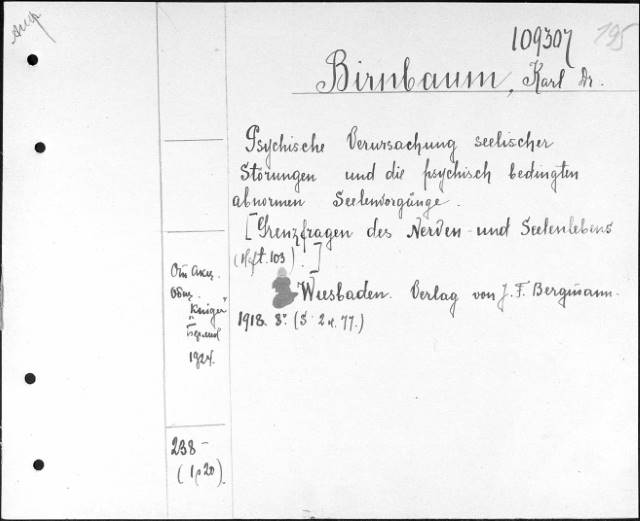 109307 195
Birnbaum, Karl Dr.
Psychische Verursachung seelischer
Störungen und die psychisch bedingten
abnormen Seelenvorgänge.
[Grenzfragen des Nerven- und Seelenlebens
(Heft. 103).]
Wiesbaden. Verlag von J. F. Bergmann.
1918. 8°. (S. 2 u. 77.)
От Акц.
Общ.
"Книга"
Берлин
1924.
238-
(1р20).